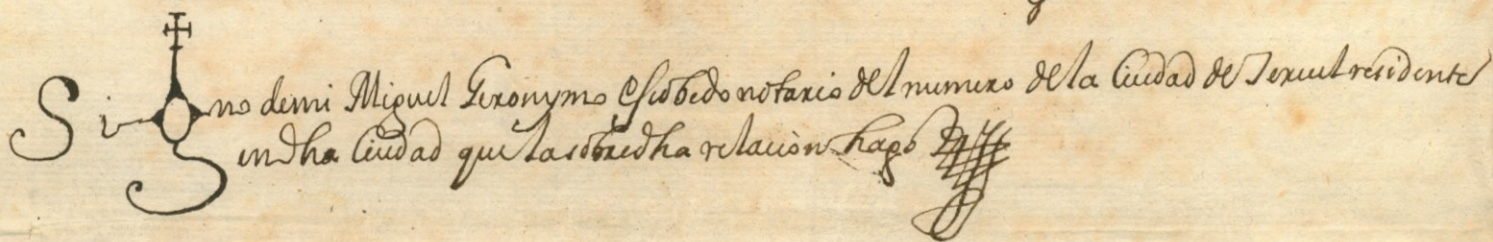 Signo de mi Miguel Geronymo Escobedo notario del numero de la Ciudad de Teruel residente
en dha Ciudad que la sobredha relaciòn hago